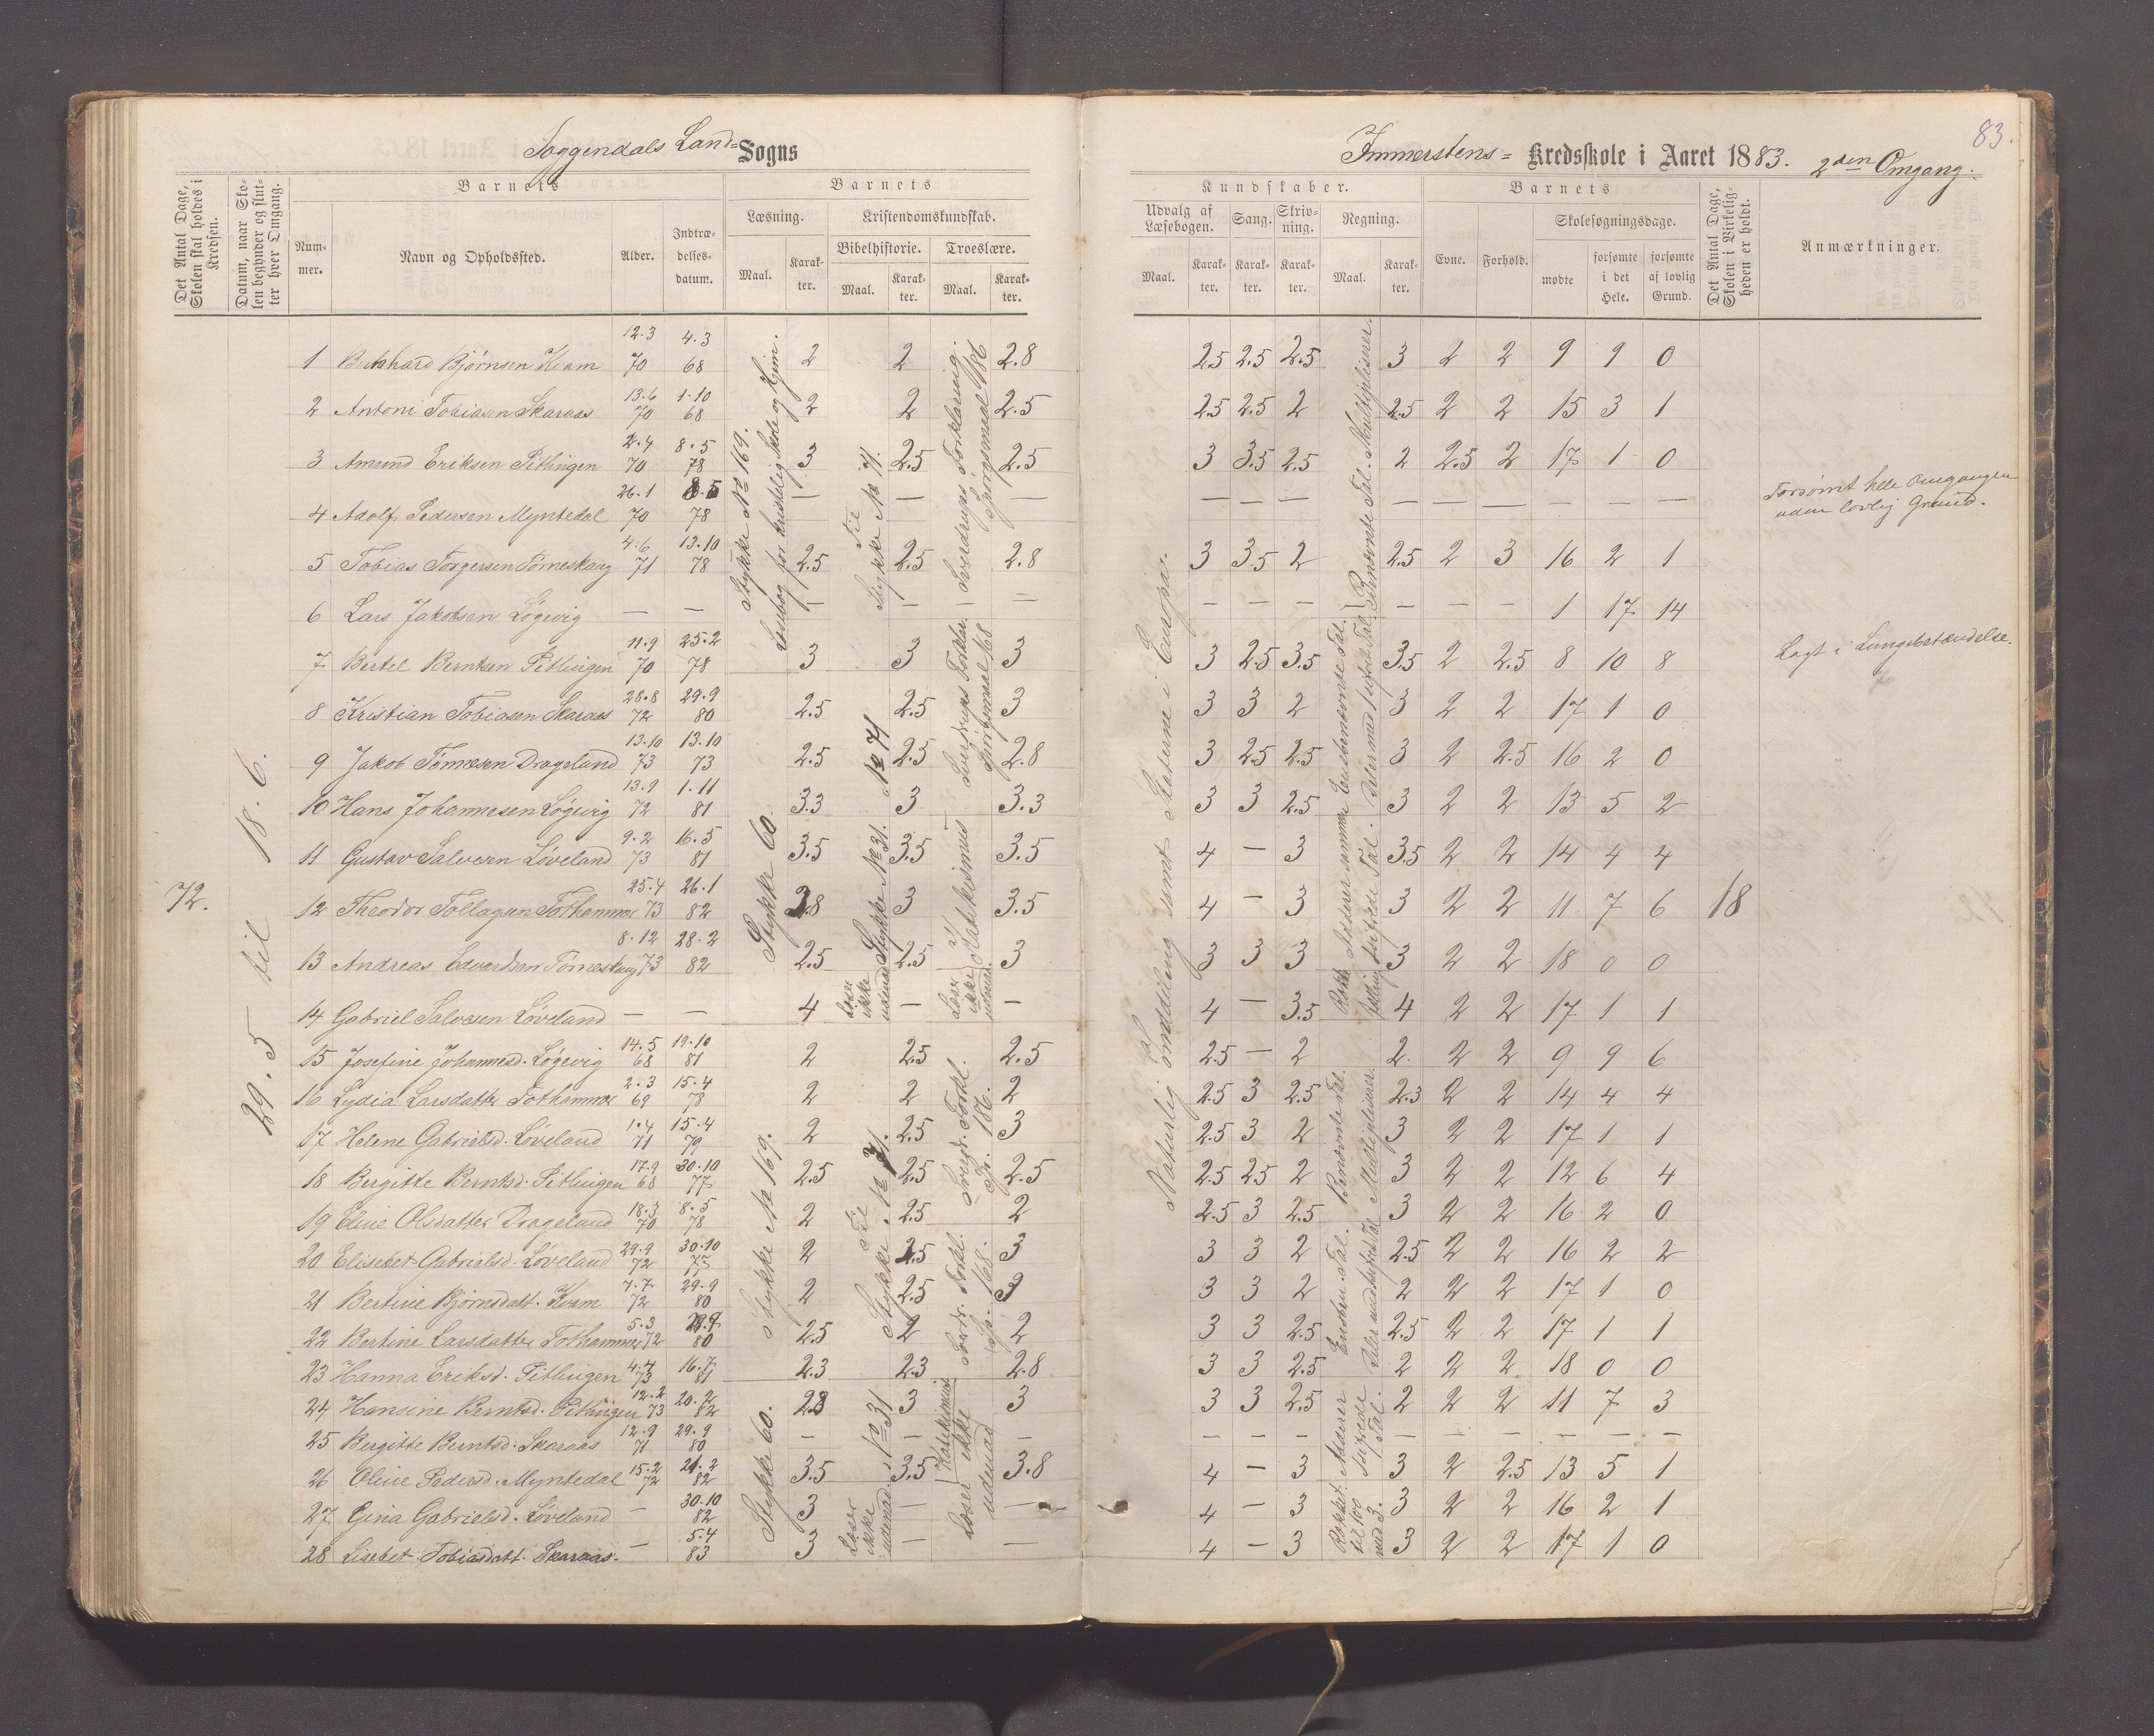 83.
Soggendals Land= Sogns
Immerstens= Kredsskole i Aaret 1883. 2den Omgang.
Det Antal Dage, Skolen skal holdes i Kredsen.
Datum, naar Skolen begynder og slutter hver Omgang.
Barnets
Nummer.
Navn og Opholdssted.
Alder.
Indtrædelses-datum.
Barnets
Læsning.
Maal.
Karakter.
Kristendomskundskab.
Bibelhistorie.
Maal.
Karakter.
Troeslære.
Maal.
Karakter.
Kundskaber.
Udvalg af Læsebogen.
Maal.
Karakter.
Sang.
Karakter.
Skrivning.
Karakter.
Regning.
Maal.
Karakter.
Barnets
Evne.
Forhold.
Skolesøgningsdage.
mødte
forsømte i det Hele.
forsømte af lovlig Grund.
Det Antal Dage, Skolen i Virkeligheden er holdt.
Anmærkninger.
72.
29.5 til 18.6.
1 Bernhard Bjørnsen Kvam 12.3 70 4.3 68 2 2 2.8 2.5 2.5 2.5 3 2 2 9 9 0
2 Antoni Tobiasen Skaraas 13.6 70 1.10 68 2 2 2.5 2.5 2.5 2 2.5 2 2 15 3 1
3 Amund Eriksen Pitlingen 2.4 70 8.5 78 3 2.5 2.5 3 3.5 2.5 2 2.5 2 17 1 0
4 Adolf Pedersen Myntedal 26.1 70 8.5 78 — — — — — — — — — — — — Forsømt hele Omgangen uden lovlig Grund.
5 Tobias Torgersen Tømeskaug 4.6 71 13.10 78 2.5 2.5 2.8 3 3.5 2 2.5 2 3 16 2 1
6 Lars Jakobsen Løgevig — — — — — — — — — — — 1 17 14
7 Bertel Berntsen Pitlingen 11.9 70 25.2 78 3 3 3 3 2.5 3.5 3.5 2 2.5 8 10 8 Lagt i Lungebetændelse.
8 Kristian Tobiasen Skaraas 28.8 72 29.9 80 2.5 2.5 3 3 3 2 3 2 2 17 1 0
9 Jakob Tønnesen Drageland 13.10 73 13.10 73 2.5 2.5 2.8 3 2.5 2.5 3 2 2.5 16 2 0
10 Hans Johannesen Løgevig 13.9 72 1.11 81 3.3 3 3.3 3 3 2.5 3 2 2 13 5 2
11 Gustav Salvesen Løveland 9.2 73 16.5 81 3.5 3.5 3.5 4 — 3 3.5 2 2 14 4 4
12 Theodor Tollagsen Tothammer 25.4 73 26.1 82 3.8 3 3.5 4 — 3 3 2 2 11 7 6 18
13 Andreas Edvardsen Tømeskaug 8.12 73 28.2 82 2.5 2.5 3 3 3 3 3 2 2 18 0 0
14 Gabriel Salvesen Løveland — — 4 — — 4 — 3.5 4 2 2 17 1 1
15 Josefine Johannesd. Løgevig 14.5 68 19.10 81 2 2.5 2.5 2.5 — 2 2. 2 2 9 9 6
16 Lydia Larsdatter Tothammer 2.3 69 15.4 78 2 2 2 2.5 3 2.5 2.3 2 2 14 4 4
17 Helene Gabrielsd. Løveland 1.4 71 15.4 79 2 2.5 3 2.5 3 2 3 2 2 17 1 1
18 Bergitte Berntsd. Pitlingen 17.9 68 30.10 77 2.5 2.5 2.5 2.5 2.5 2 3 2 2 12 6 4
19 Eline Olsdatter Drageland 18.3 70 8.5 78 2 2.5 2 2.5 3 2.5 3 2 2 16 2 0
20 Elisebet Gabrielsd. Løveland 29.9 72 30.10 77 2 2.5 3 3 3 2 2.5 2 2 16 2 2
21 Bertine Bjørnsdatt. Kvam 7.7 72 29.9 80 2 2.5 3 3 3 2 2 2 2 17 1 0
22 Bertine Larsdatter Tothammer 5.3 72 29.9 80 2.5 2 2 3 3 2.5 2.5 2 2 17 1 1
23 Hanna Eriksd. Pitlingen 4.4 73 16.7 81 2.3 2.3 2.8 3 3 2.5 2 2 2 18 0 0
24 Hansine Berntsd. Pitlingen 12.2 73 20.2 82 2.8 3 3 3 3 2.5 2 2 2 11 7 3
25 Bergitte Berntsd. Skaraas 12.9 71 29.9 80 — — — — — — — — — — — —
26 Oline Pedersd. Myntedal 15.2 72 21.2 82 3.5 3.5 3.8 4 — 3 3 2 2.5 13 5 1
27 Gina Gabrielsd. Løveland — 30.10 82 3 — — 4 — 3 3 2 2 16 2 1
28 Lisebet Tobiasdatt. Skaraas. — 5.4 83 3 — — 4 — 3 3 2 2 17 1 0
Stykke No 169. Læsebog for kristelig Skole og Hjem.
Stykke 60.
Stykke No 169.
Stykke 60.
Til Stykke No 71.
No 71
Stykke No 31.
Læser ikke udenad
Til Stykke No 71.
No 31
Læser ikke udenad.
Sverdrups Forklaring. Spørgsmaal 186
Sverdrups Forklar. Spørgsmaal 168
Katekismus
Læser ikke udenad.
Sverdr. Forkl. Sp. 186.
Sverdr. Forkl. Sp. 168.
Katekismus
Læser ikke udenad
Naturlig Inddeling samt Staterne i Europa.
Benævnte Tal. Multipliserer.
Ensbenævnte Tal. Deler med 1 sifret Tal.
Adderer samme sifrede Tal.
Benævnte Tal. Multipliserer.
Ensben. Tal.
Adderer sifrede Tal.
Rækket til 100 med 3.